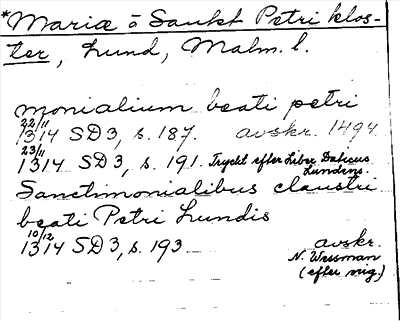 *Mariæ o Sankt Petri klos-
ter, Lund, Malm. l.
monialium beati petri
22/11
1314 SD3, s. 187. avskr. 1494
23/11
1314 SD3, s. 191. Tryckt efter Liber Daticus
Lundens.
Sanctimonialibus claustri
beati Petri Lundis
10/12
1314 SD3, s. 193 avskr.
N. Wessman
(efter mig.)